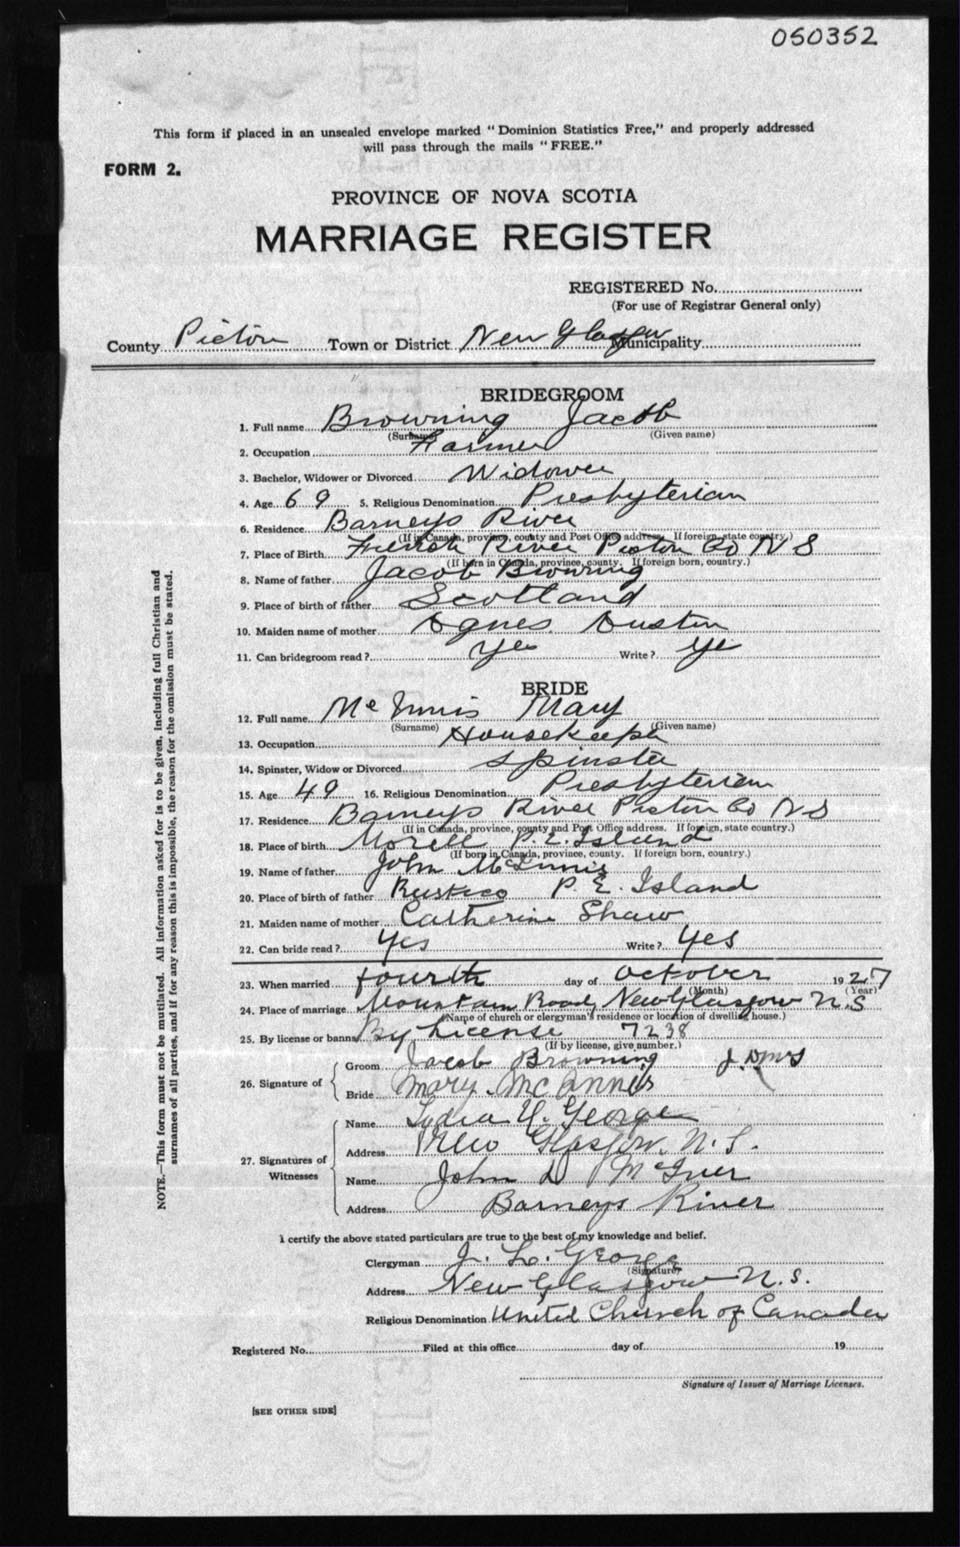 050352
This form if placed in an unsealed envelope marked "Dominion Statistics Free," and properly addressed
will pass through the mails "FREE."
FORM 2.
PROVINCE OF NOVA SCOTIA
MARRIAGE REGISTER
REGISTERED No.
(For use of Registrar General only)
County Pictou Town or District New Glasgow Municipality
BRIDEGROOM
1. Full name Browning Jacob
(Surname) (Given name)
2. Occupation Farmer
3. Bachelor, Widower or Divorced Widower
4. Age 69 5. Religious Denomination Presbyterian
6. Residence Barneys River
(If in Canada, province, county and Post Office address. If foreign, state country.)
7. Place of Birth French River Pictou Co N S
(If born in Canada, province, county. If foreign born, country.)
8. Name of father Jacob Browning
9. Place of birth of father Scotland
10. Maiden name of mother Agnes Austin
11. Can bridegroom read? Yes Write? Yes
BRIDE
12. Full name McInnis Mary
(Surname) (Given name)
13. Occupation Housekeeper
14. Spinster, Widow or Divorced Spinster
15. Age 49 16. Religious Denomination Presbyterian
17. Residence Barneys River Pictou Co N S
(If in Canada, province, county and Post Office address. If foreign, state country.)
18. Place of birth Morell P. E. Island
(If born in Canada, province, county. If foreign born, country.)
19. Name of father John McInnis
20. Place of birth of father Rustico P. E. Island
21. Maiden name of mother Catherine Shaw
22. Can bride read? Yes Write? Yes
23. When married fourth day of October 1927
(Month) (Year)
24. Place of marriage Mountain Road, New Glasgow N.S
(Name of church or clergyman's residence or location of dwelling house.)
25. By license or banns By License 7238
(If by license, give number.)
26. Signature of
Groom Jacob Browning
Bride Mary McInnis
27. Signatures of Witnesses
Name Lydia Y. George
Address New Glasgow, N.S.
Name John D McIver
Address Barneys River
I certify the above stated particulars are true to the best of my knowledge and belief.
Clergyman J. L. George
(Signature)
Address New Glasgow N.S.
Religious Denomination United Church of Canada
Registered No. Filed at this office day of 19
Signature of Issuer of Marriage Licenses.
[SEE OTHER SIDE]
NOTE.—This form must not be mutilated. All information asked for is to be given, including full Christian and
surnames of all parties, and if for any reason this is impossible, the reason for the omission must be stated.